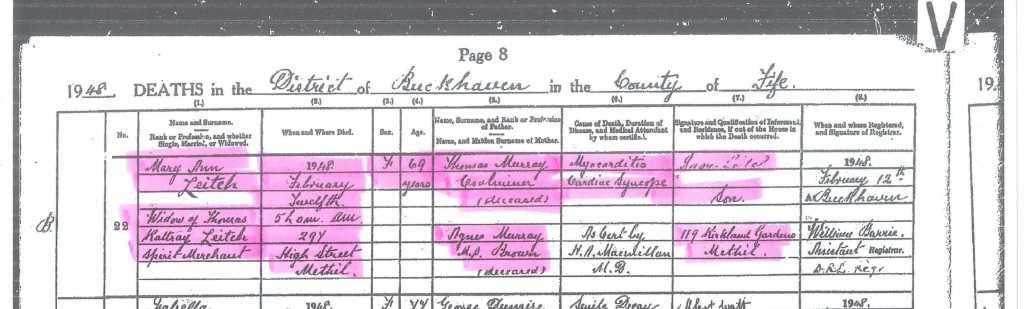 V
Page 8
1948. DEATHS in the District of Buckhaven in the County of Fife.
19
(1.) (2.) (3.) (4.) (5.) (6.) (7.) (8.)
No.
Name and Surname.
Rank or Profession, and whether
Single, Married, or Widowed.
When and Where Died.
Sex.
Age.
Name, Surname, and Rank or Profession
of Father.
Name, and Maiden Surname of Mother.
Cause of Death, Duration of
Disease, and Medical Attendant
by whom certified.
Signature and Qualification of Informant,
and Residence, if out of the House in
which the Death occurred.
When and where Registered,
and Signature of Registrar.
22
Mary Ann
Leitch
Widow of Thomas
Rattray Leitch
Spirit Merchant
1948
February
Twelfth
5h 0m. AM.
294
High Street
Methil.
F
69
years
Thomas Murray
Coalminer
(deceased)
Agnes Murray
M.S. Brown
(deceased)
Myocarditis
Cardiac Syncope
As Cert by
Macmillan
M.B.
Son.
119 Kirkland Gardens
Methil.
1948.
February 12th
Buckhaven
William Barrie.
Assistant Registrar.
1948.
F
George
Senile Decay
1948.